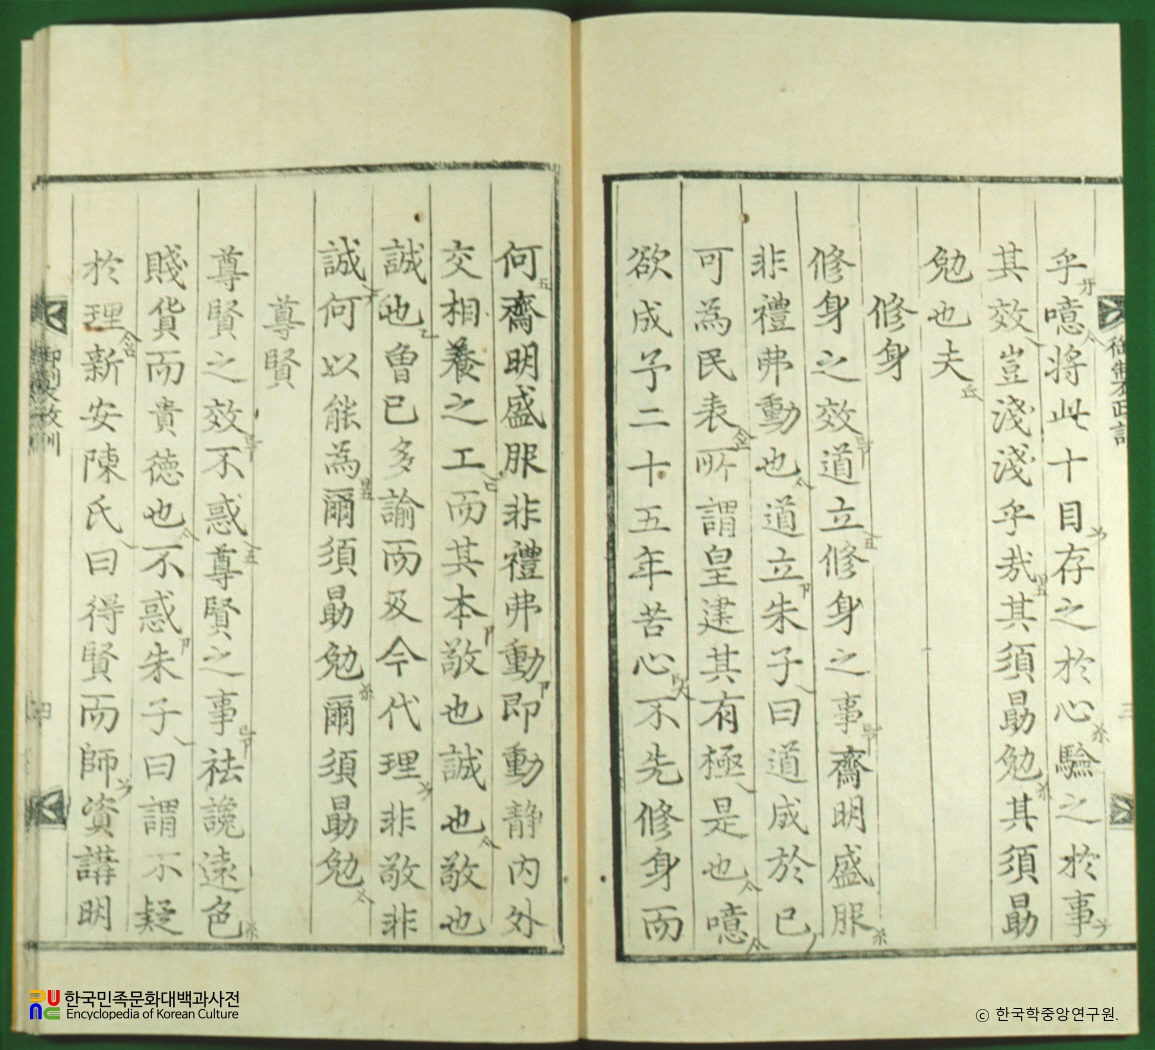 乎噫將此十目存之於心驗之於事
其效豈淺淺乎哉其須勗勉其須勗
勉也夫
修身
修身之效道立修身之事齊明盛服
非禮弗動也道立朱子曰道成於已
可為民表所謂皇建其有極是也噫
欲成予二十五年苦心不先修身而
何齊明盛服非禮弗動即動靜內外
交相養之工而其本敬也誠也敬也
誠也曾已多諭而及今代理非敬非
誠何以能為爾須勗勉爾須勗勉
尊賢
尊賢之效不惑尊賢之事祛讒遠色
賤貨而貴德也不惑朱子曰謂不疑
於理新安陳氏曰得賢而師資講明
한국민족문화대백과사전
Encyclopedia of Korean Culture
ⓒ 한국학중앙연구원.